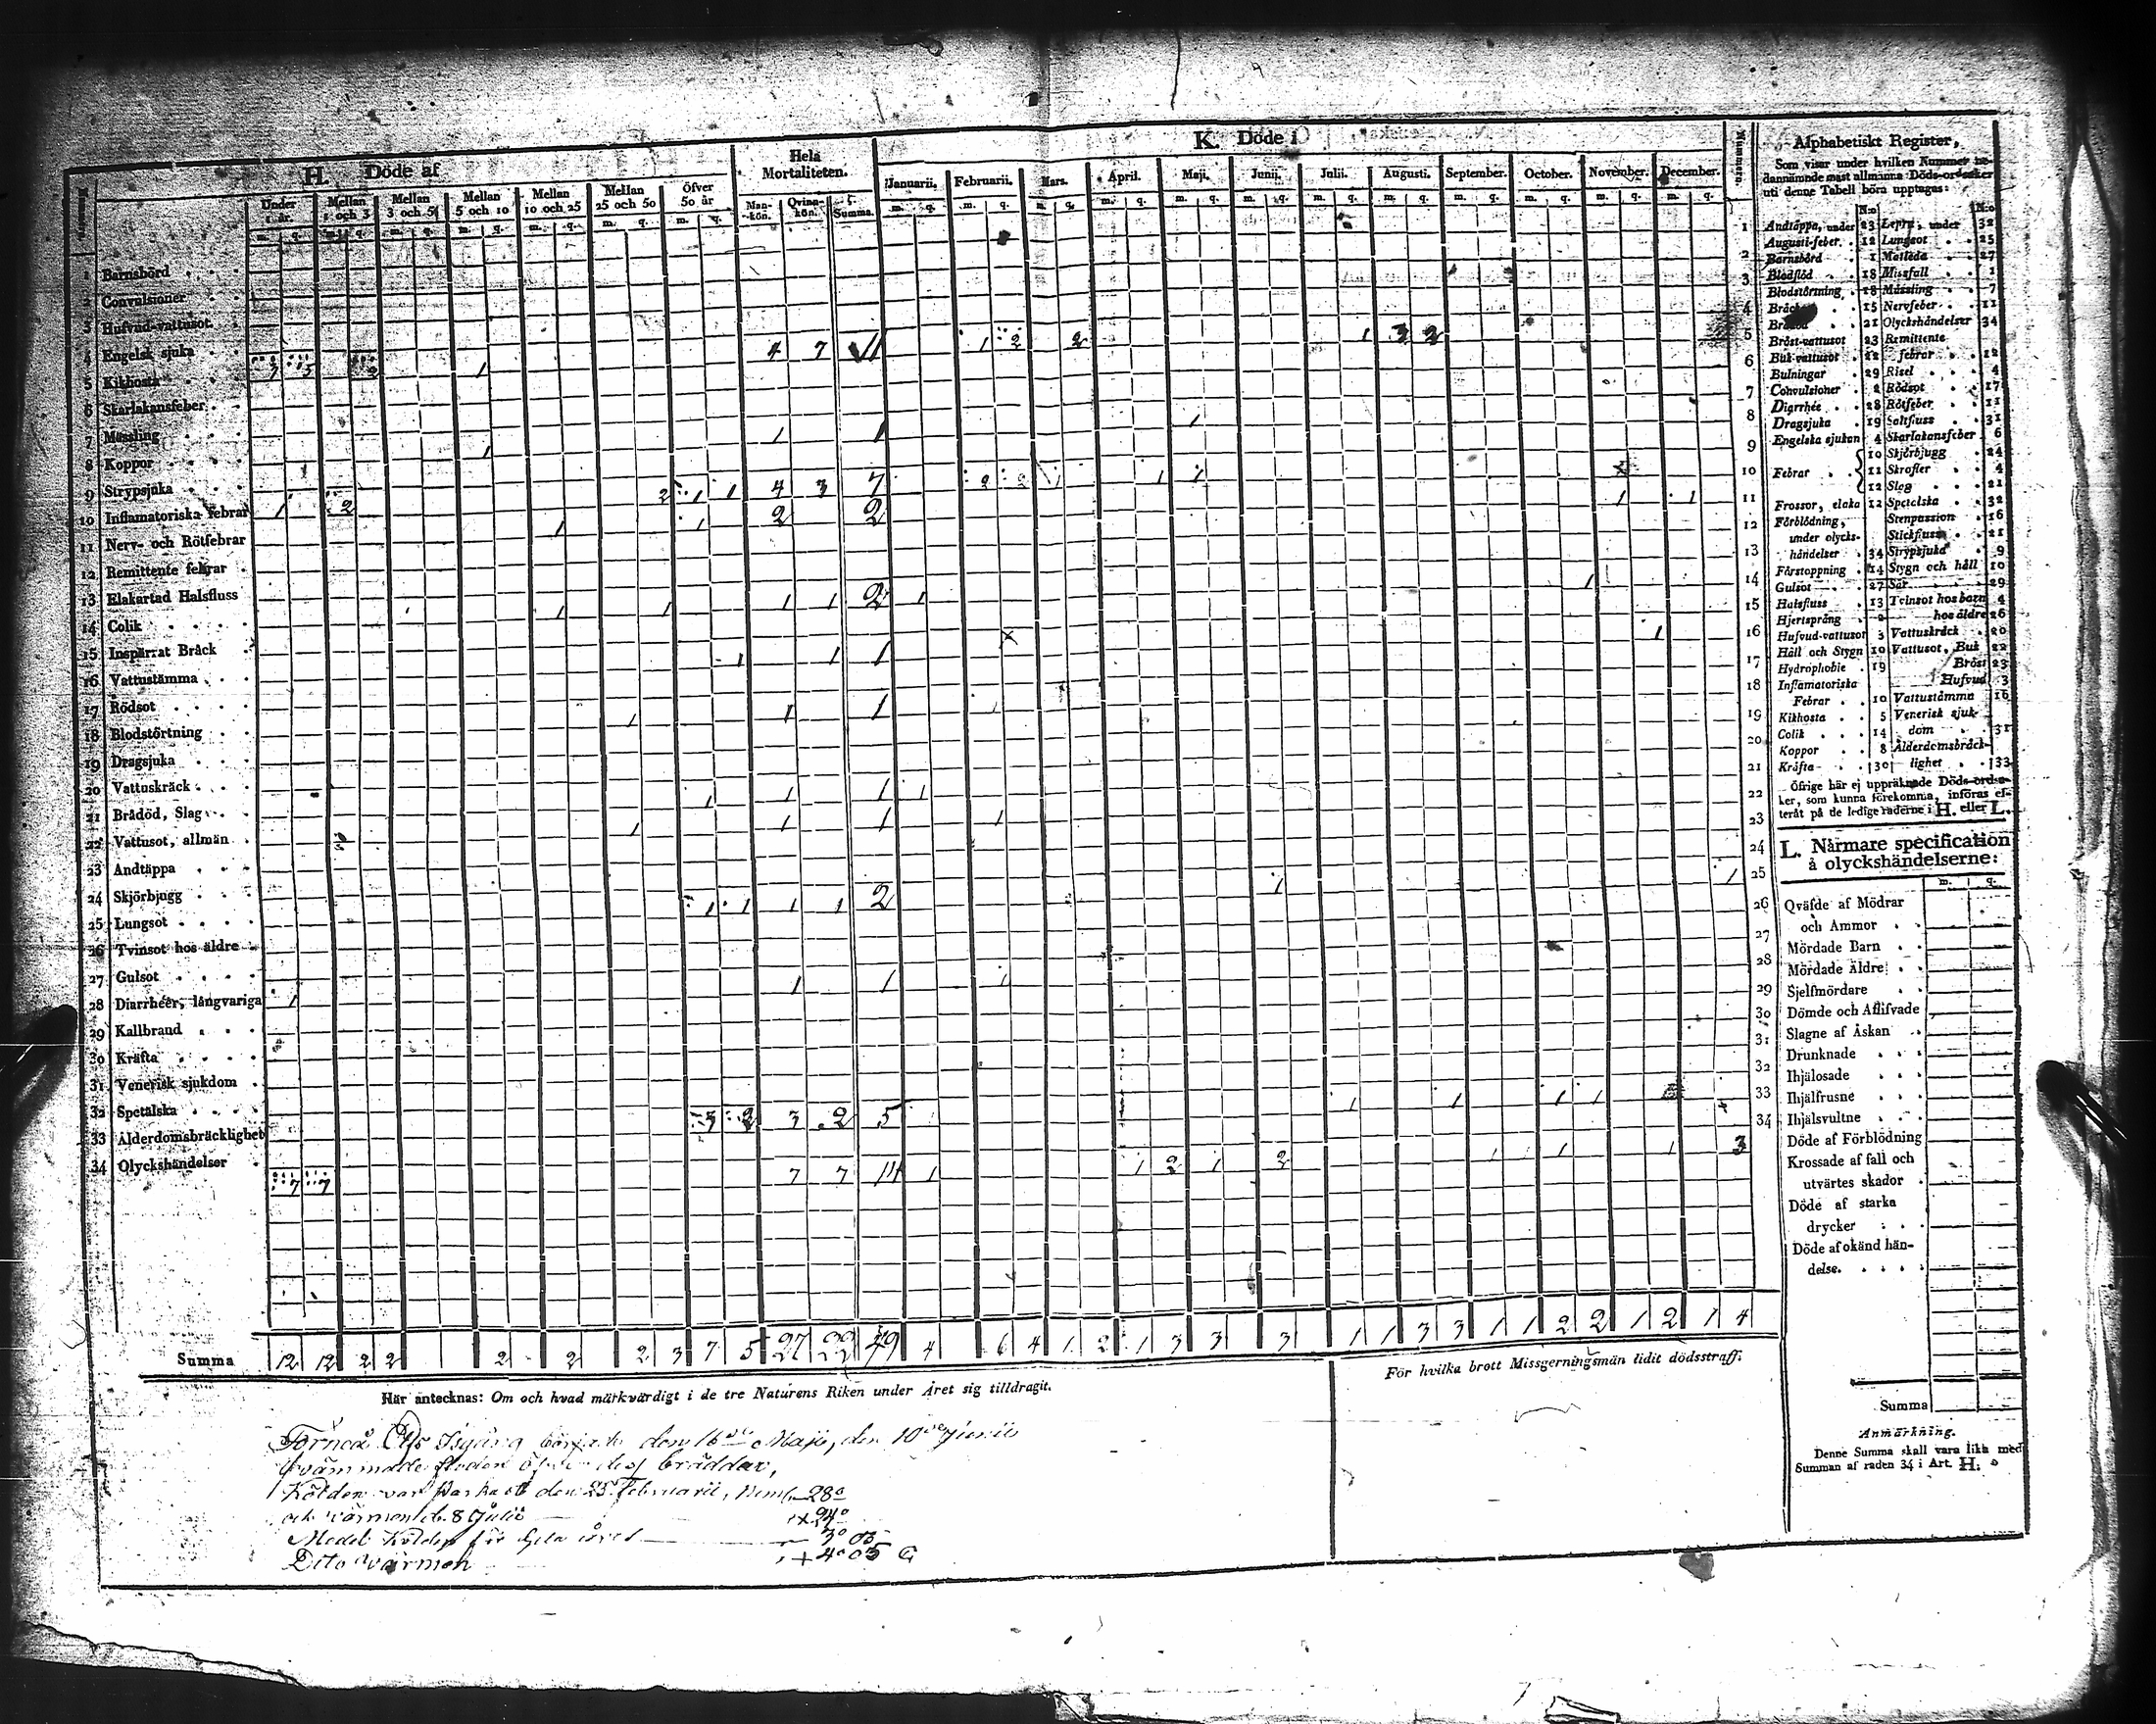 H. Döde af
Hela Mortaliteten.
K. Döde i
Under 1 år.
Mellan 1 och 3
Mellan 3 och 5
Mellan 5 och 10
Mellan 10 och 25
Mellan 25 och 50
Öfver 50 år
Man-kön.
Qvin-kön.
Summa.
Januarii.
Februarii.
Mars.
April.
Maji.
Junii.
Julii.
Augusti.
September.
October.
November.
December.
1 Barnsbörd
2 Convulsioner
3 Hufvud-vattusot
4 Engelsk sjuka
5 Kikhosta 7 5 2 1 4 7 11 1 2 2 1 3 2
6 Skarlakansfeber
7 Mässling
8 Koppor 1 1 1 1
9 Strypsjuka
10 Inflamatoriska febrar 1 2 2 1 1 4 3 7 2 2 1 1 1
11 Nerv- och Rötfebrar 1 1 2 2 1 1
12 Remittente febrar
13 Elakartad Halsfluss
14 Colik 1 1 1 1 2 1 1
15 Inspärrat Bråck
16 Vattustämma 1 1 1 1
17 Rödsot
18 Blodstörtning 1 1 1 1
19 Dragsjuka
20 Vattuskräck
21 Brådöd, Slag 1 1 1 1
22 Vattusot, allmän 1 1 1 1
23 Andtäppa
24 Skjörbjugg
25 Lungsot 1 1 1 1 2 1 1
26 Tvinsot hos äldre
27 Gulsot
28 Diarrhéer, långvariga 1 1 1 1
29 Kallbrand
30 Kräfta
31 Venerisk sjukdom
32 Spetälska
33 Ålderdomsbräcklighet 3 2 3 2 5 1 1 1 1
34 Olyckshändelser
7 7 7 7 14 1 1 2 1 2 1 1 1 3
Summa 12 12 2 2 2 2 2 3 7 5 27 22 49 4 6 4 1 2 1 3 3 3 1 1 3 3 1 1 2 2 1 2 1 4
Här antecknas: Om och hvad märkvärdigt i de tre Naturens Riken under Året sig tilldragit.
För hvilka brott Missgerningsmän lidit dödsstraff.
Torneå Elfs Isgång började den 16de Maji, den 10de Junii
svämmade floden öfver dess bräddar,
Kölden var starkast den 25 Februarii, 28°
och värmen d. 8 Julii + 24°
Medel Kölden för hela året — 3° 03
Dito värmen + 4° 05 C
Alphabetiskt Register,
Som visar under hvilken Nummer nedannämnde mäst allmänna Döds-ordsaker uti denne Tabell böra upptagas:
Andtäppa, under 23 Lepra, under 32
Augusti-feber 12 Lungsot 25
Barnsbörd 1 Matleda 27
Blodflöd 18 Missfall 1
Blodstörtning 18 Mässling 7
15 Nervfeber 11
21 Olyckshändelser 34
Bröst-vattusot 23 Remittente
Buk-vattusot 22 febrar 12
Bulningar 29 Risel 4
Convulsioner 2 Rödsot 17
Diarrhée 28 Rötfeber 11
Dragsjuka 19 Saltfluss 31
Engelska sjukan 4 Skarlakansfeber 6
10 Skjörbjugg 24
Febrar 11 Skrofler 4
12 Slag 21
Frossor, elaka 12 Spetelska 32
Förblödning, Stenpassion 16
under olycks- Stickfluss 21
händelser 34 Strypsjuka 9
Förstoppning 14 Stygn och håll 10
Gulsot 27 Sår 29
Halsfluss 13 Tvinsot hos barn 4
Hjertsprång 2 hos äldre 26
Hufvud-vattusot 3 Vattuskräck 20
Håll och Stygn 10 Vattusot, Buk 22
Hydrophobie 19 Bröst 23
Inflamatoriska Hufvud 3
Febrar 10 Vattustämma 16
Kikhosta 5 Venerisk sjuk-
Colik 14 dom 31
Koppor 8 Ålderdomsbräck-
Kräfta 30 lighet 33
Öfrige här ej uppräknade Döds-ordsaker, som kunna förekomma, införas efteråt på de ledige raderne i H. eller L.
L. Närmare specification
å olyckshändelserne:
Qväfde af Mödrar
och Ammor
Mördade Barn
Mördade Äldre
Sjelfmördare
Dömde och Aflifvade
Slagne af Åskan
Drunknade
Ihjälosade
Ihjälfrusne
Ihjälsvultne
Döde af Förblödning
Krossade af fall och
utvärtes skador
Döde af starka
drycker
Döde af okänd hän-
delse.
Summa
Anmärkning.
Denne Summa skall vara lika med
Summan af raden 34 i Art. H.